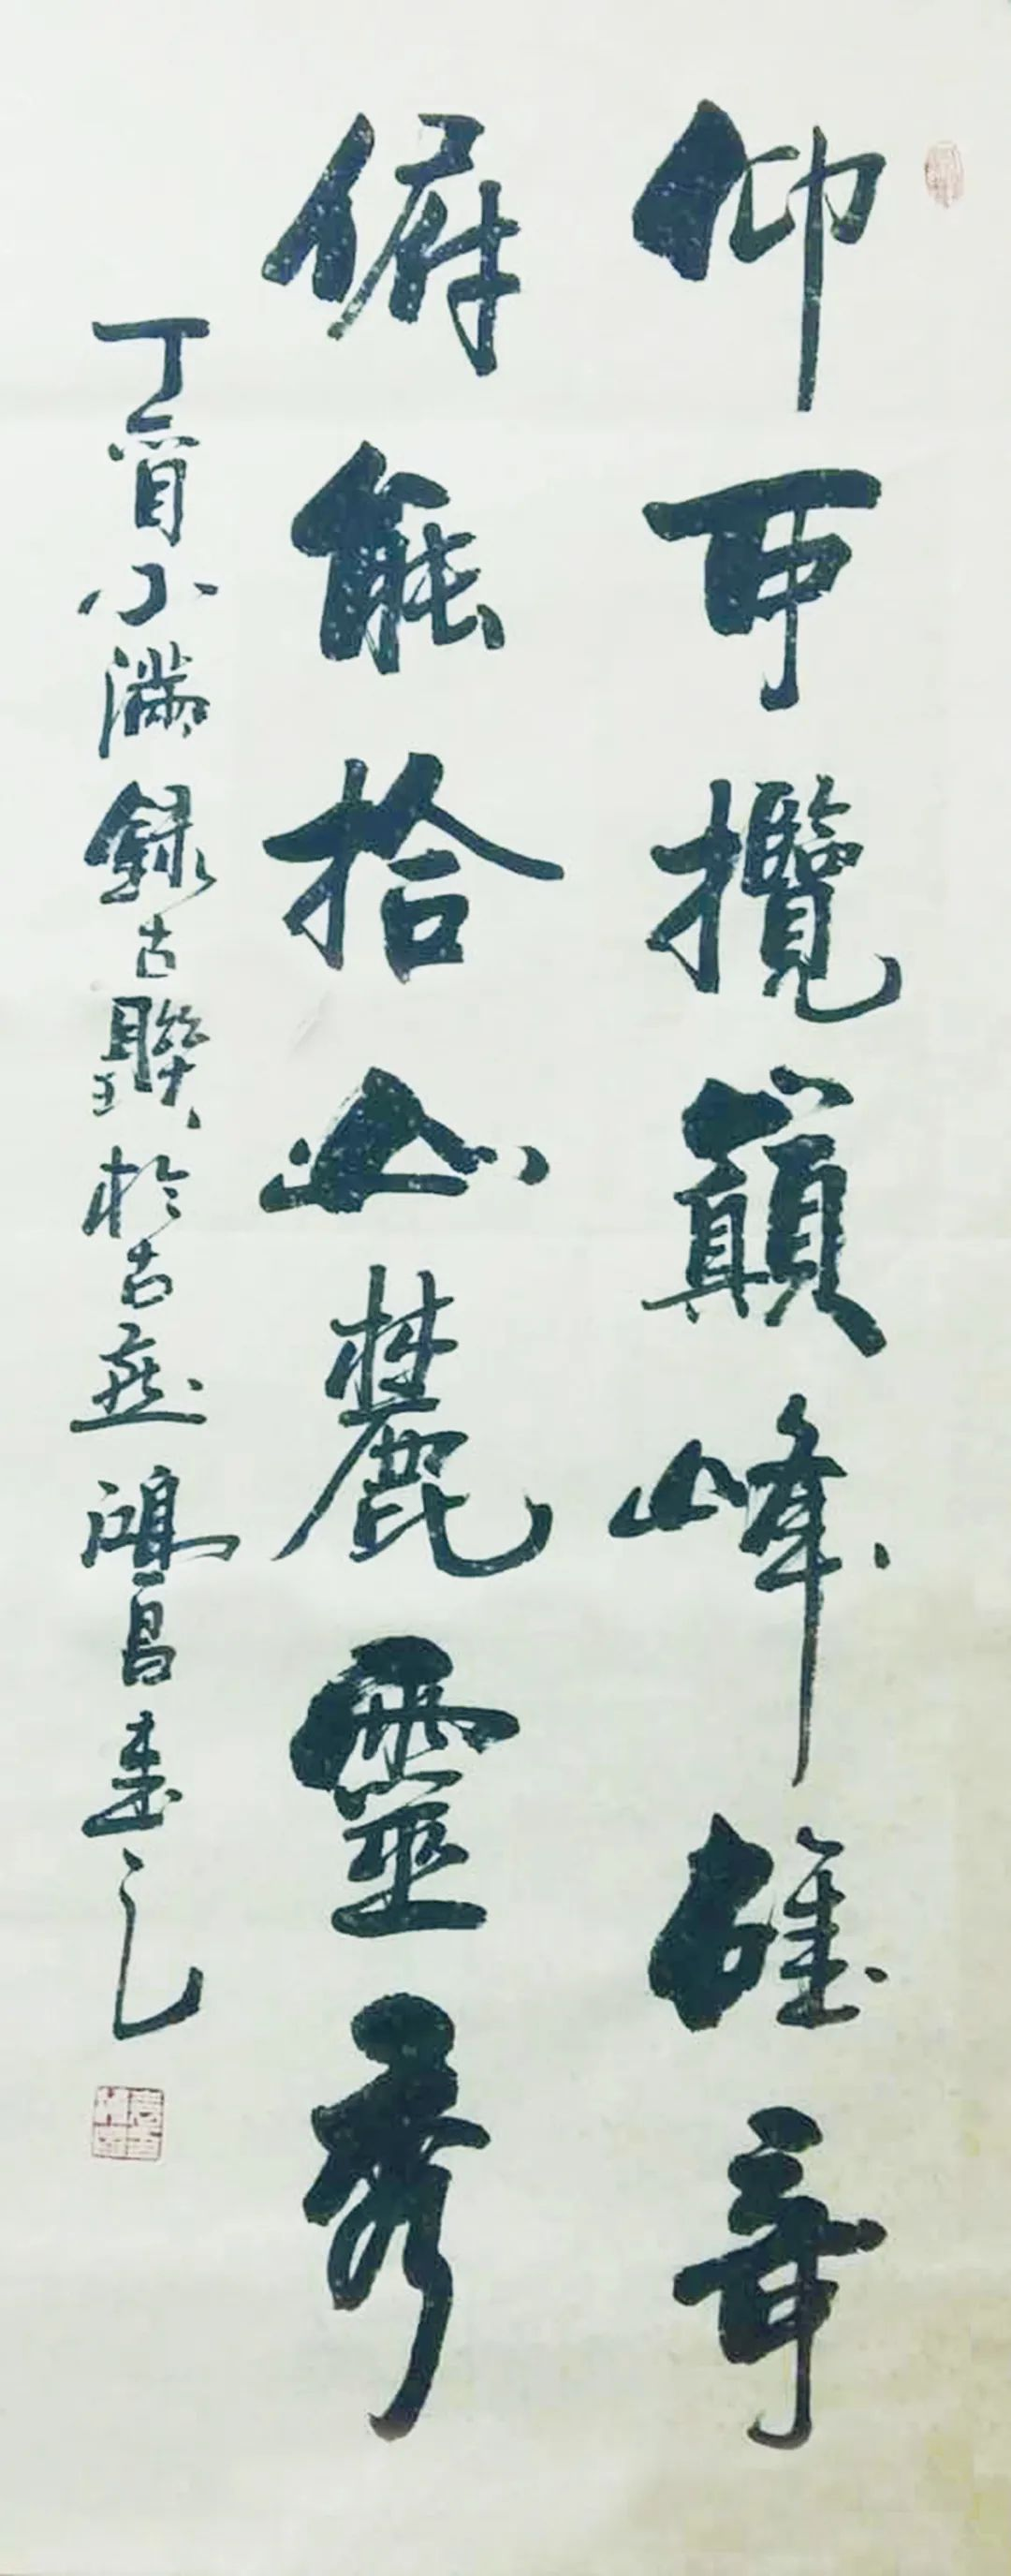 仰可攬巔峰雄奇
俯能拾山麓靈秀
丁酉小滿錄古聯於古燕鴻昌書之